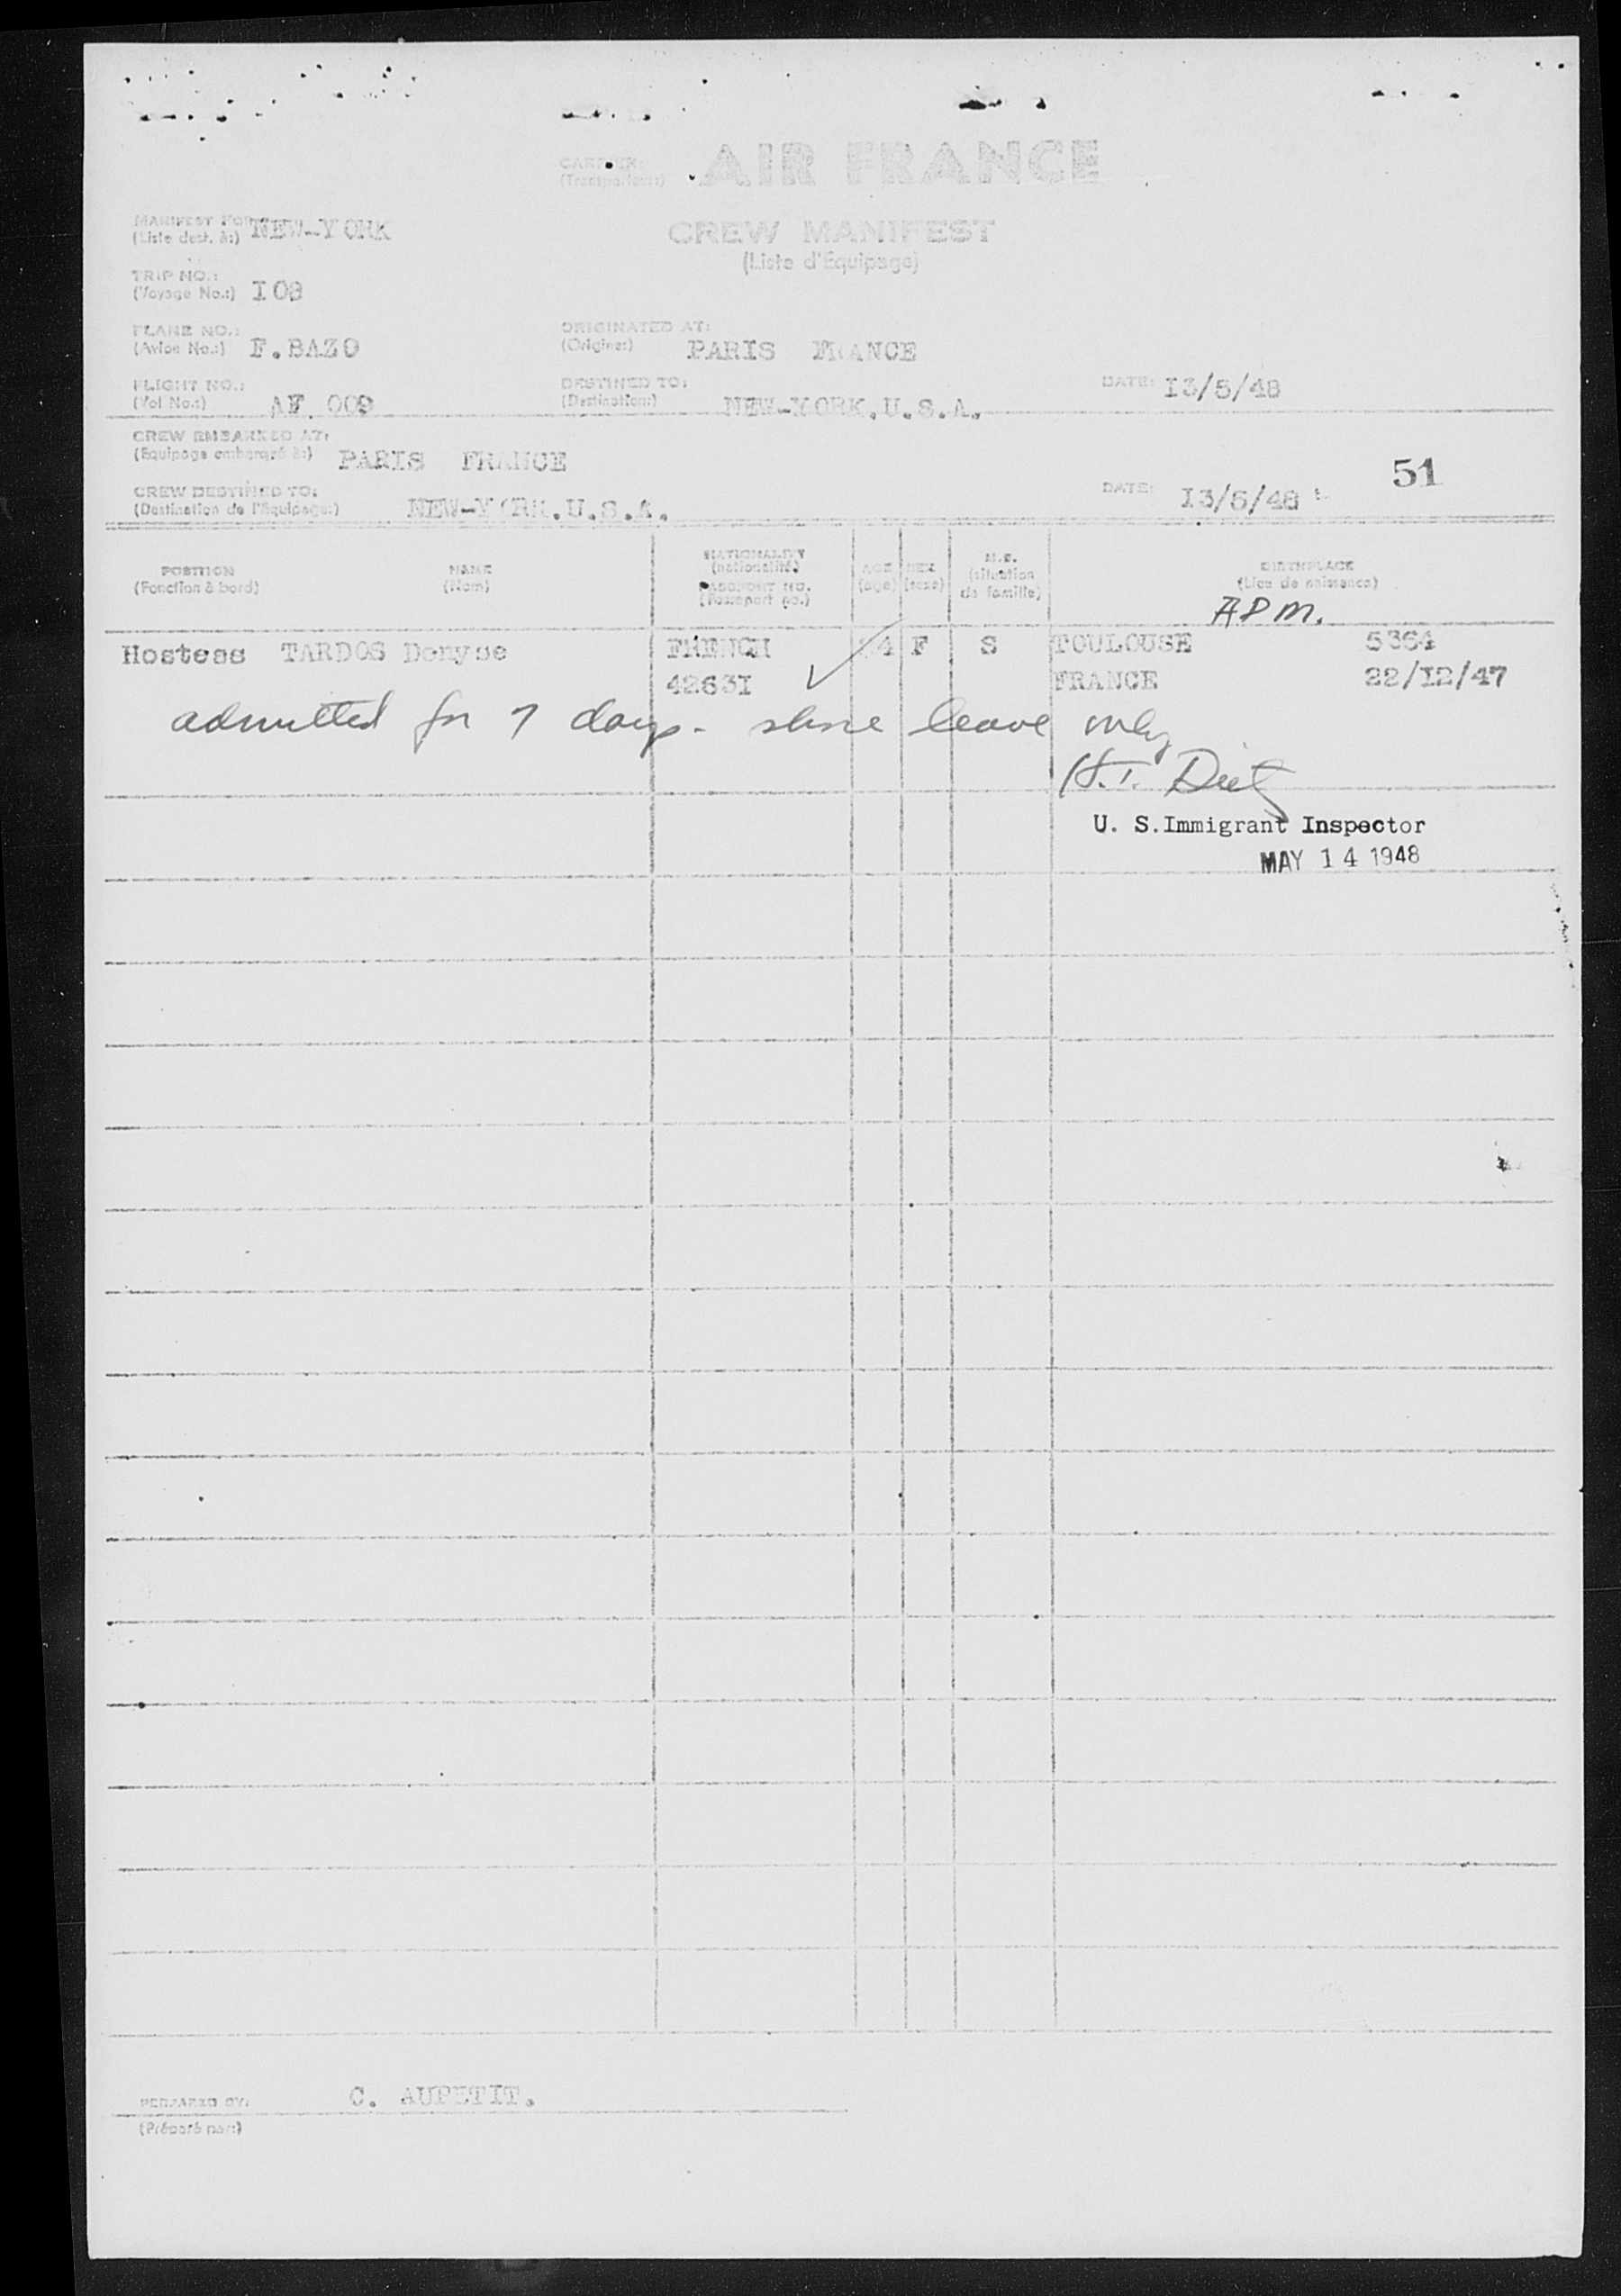 CARRIER: AIR FRANCE
(Transporteur:)
MANIFEST FOR: NEW-YORK
(Liste dest. à:)
CREW MANIFEST
(Liste d'Équipage)
TRIP NO.:
(Voyage No.:) I08
PLANE NO.:
(Avion No.:) F.BAZO
ORIGINATED AT:
(Origine:) PARIS FRANCE
FLIGHT NO.:
(Vol No.:) AF. 009
DESTINED TO:
(Destination:) NEW-YORK.U.S.A.
DATE: I3/5/48
CREW EMBARKED AT:
(Equipage embarqué à:) PARIS FRANCE
51
CREW DESTINED TO:
(Destination de l'Equipage:) NEW-YORK.U.S.A.
DATE: I3/5/48
POSITION
(Fonction à bord)
NAME
(Nom)
NATIONALITY
(nationalité)
PASSPORT NO.
(Passeport no.)
AGE
(age)
SEX
(sexe)
M.S.
(situation
de famille)
BIRTHPLACE
(Lieu de naissance)
APM.
Hostess TARDOS Denyse FRENCH 4 F S TOULOUSE 5364
4263I FRANCE 22/I2/47
admitted for 7 days - shore leave only
U. S. Immigrant Inspector
MAY 14 1948
PREPARED BY: C. AUPETIT.
(Préparé par:)